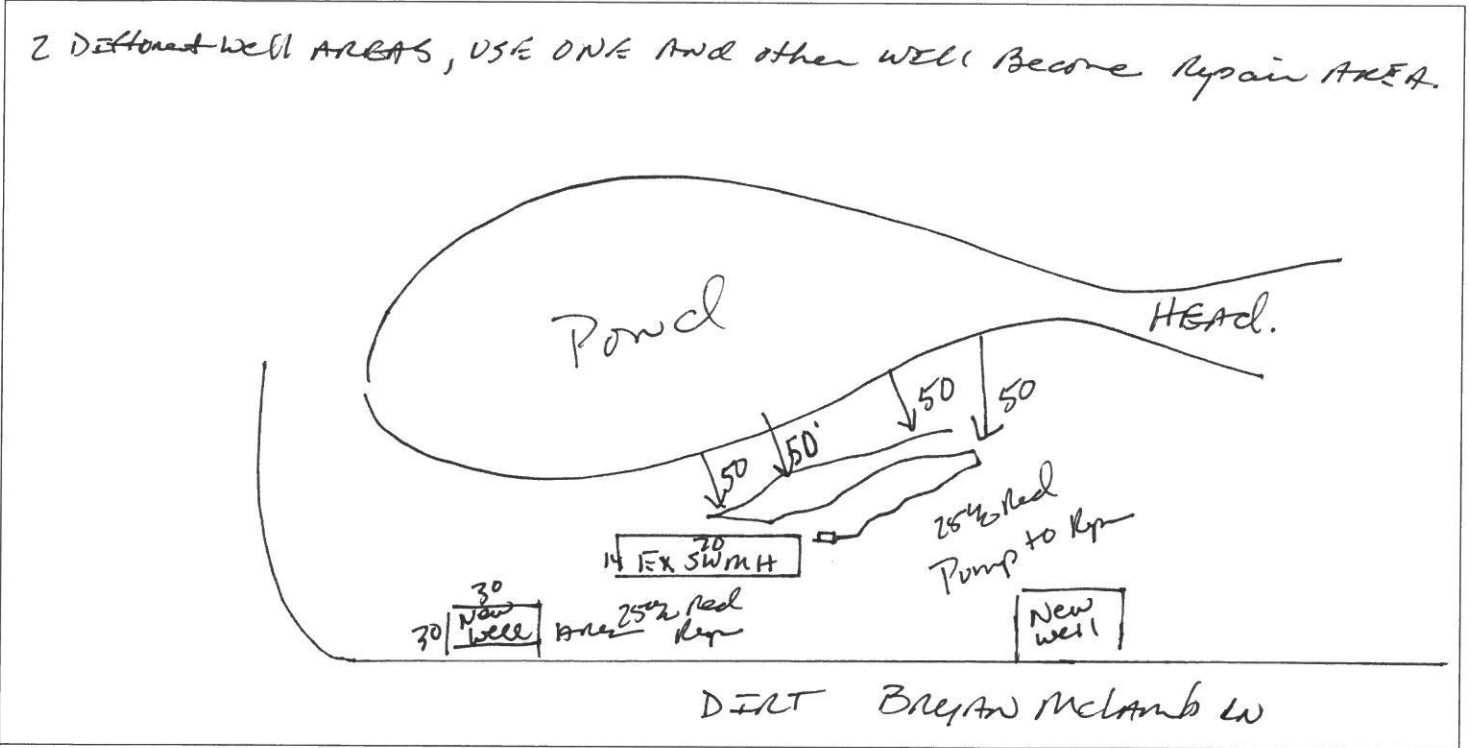 2 Different well AREAS, USE ONE AND other WILL Become Repair AREA.
Pond
HEAd.
50
50'
50
50
25% Red
Pump to Repr
14 70
EX SWMH
30
30 New
well
Area 25% Red
Repr
New
well
DIRT BRyAN McLAmb LN